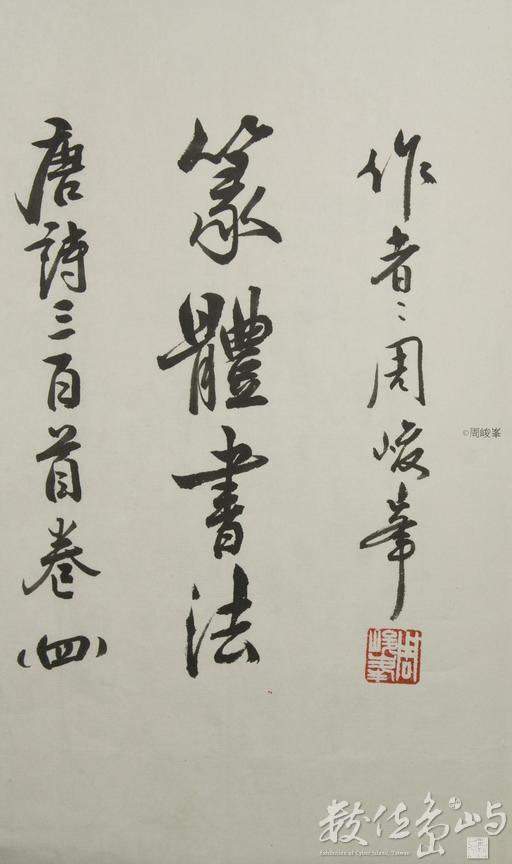 作者:周峻峯
篆體書法
唐詩三百首卷(四)
周峻峯
©周峻峯
數位島嶼
Exhibition of Cyber Island, Taiwan